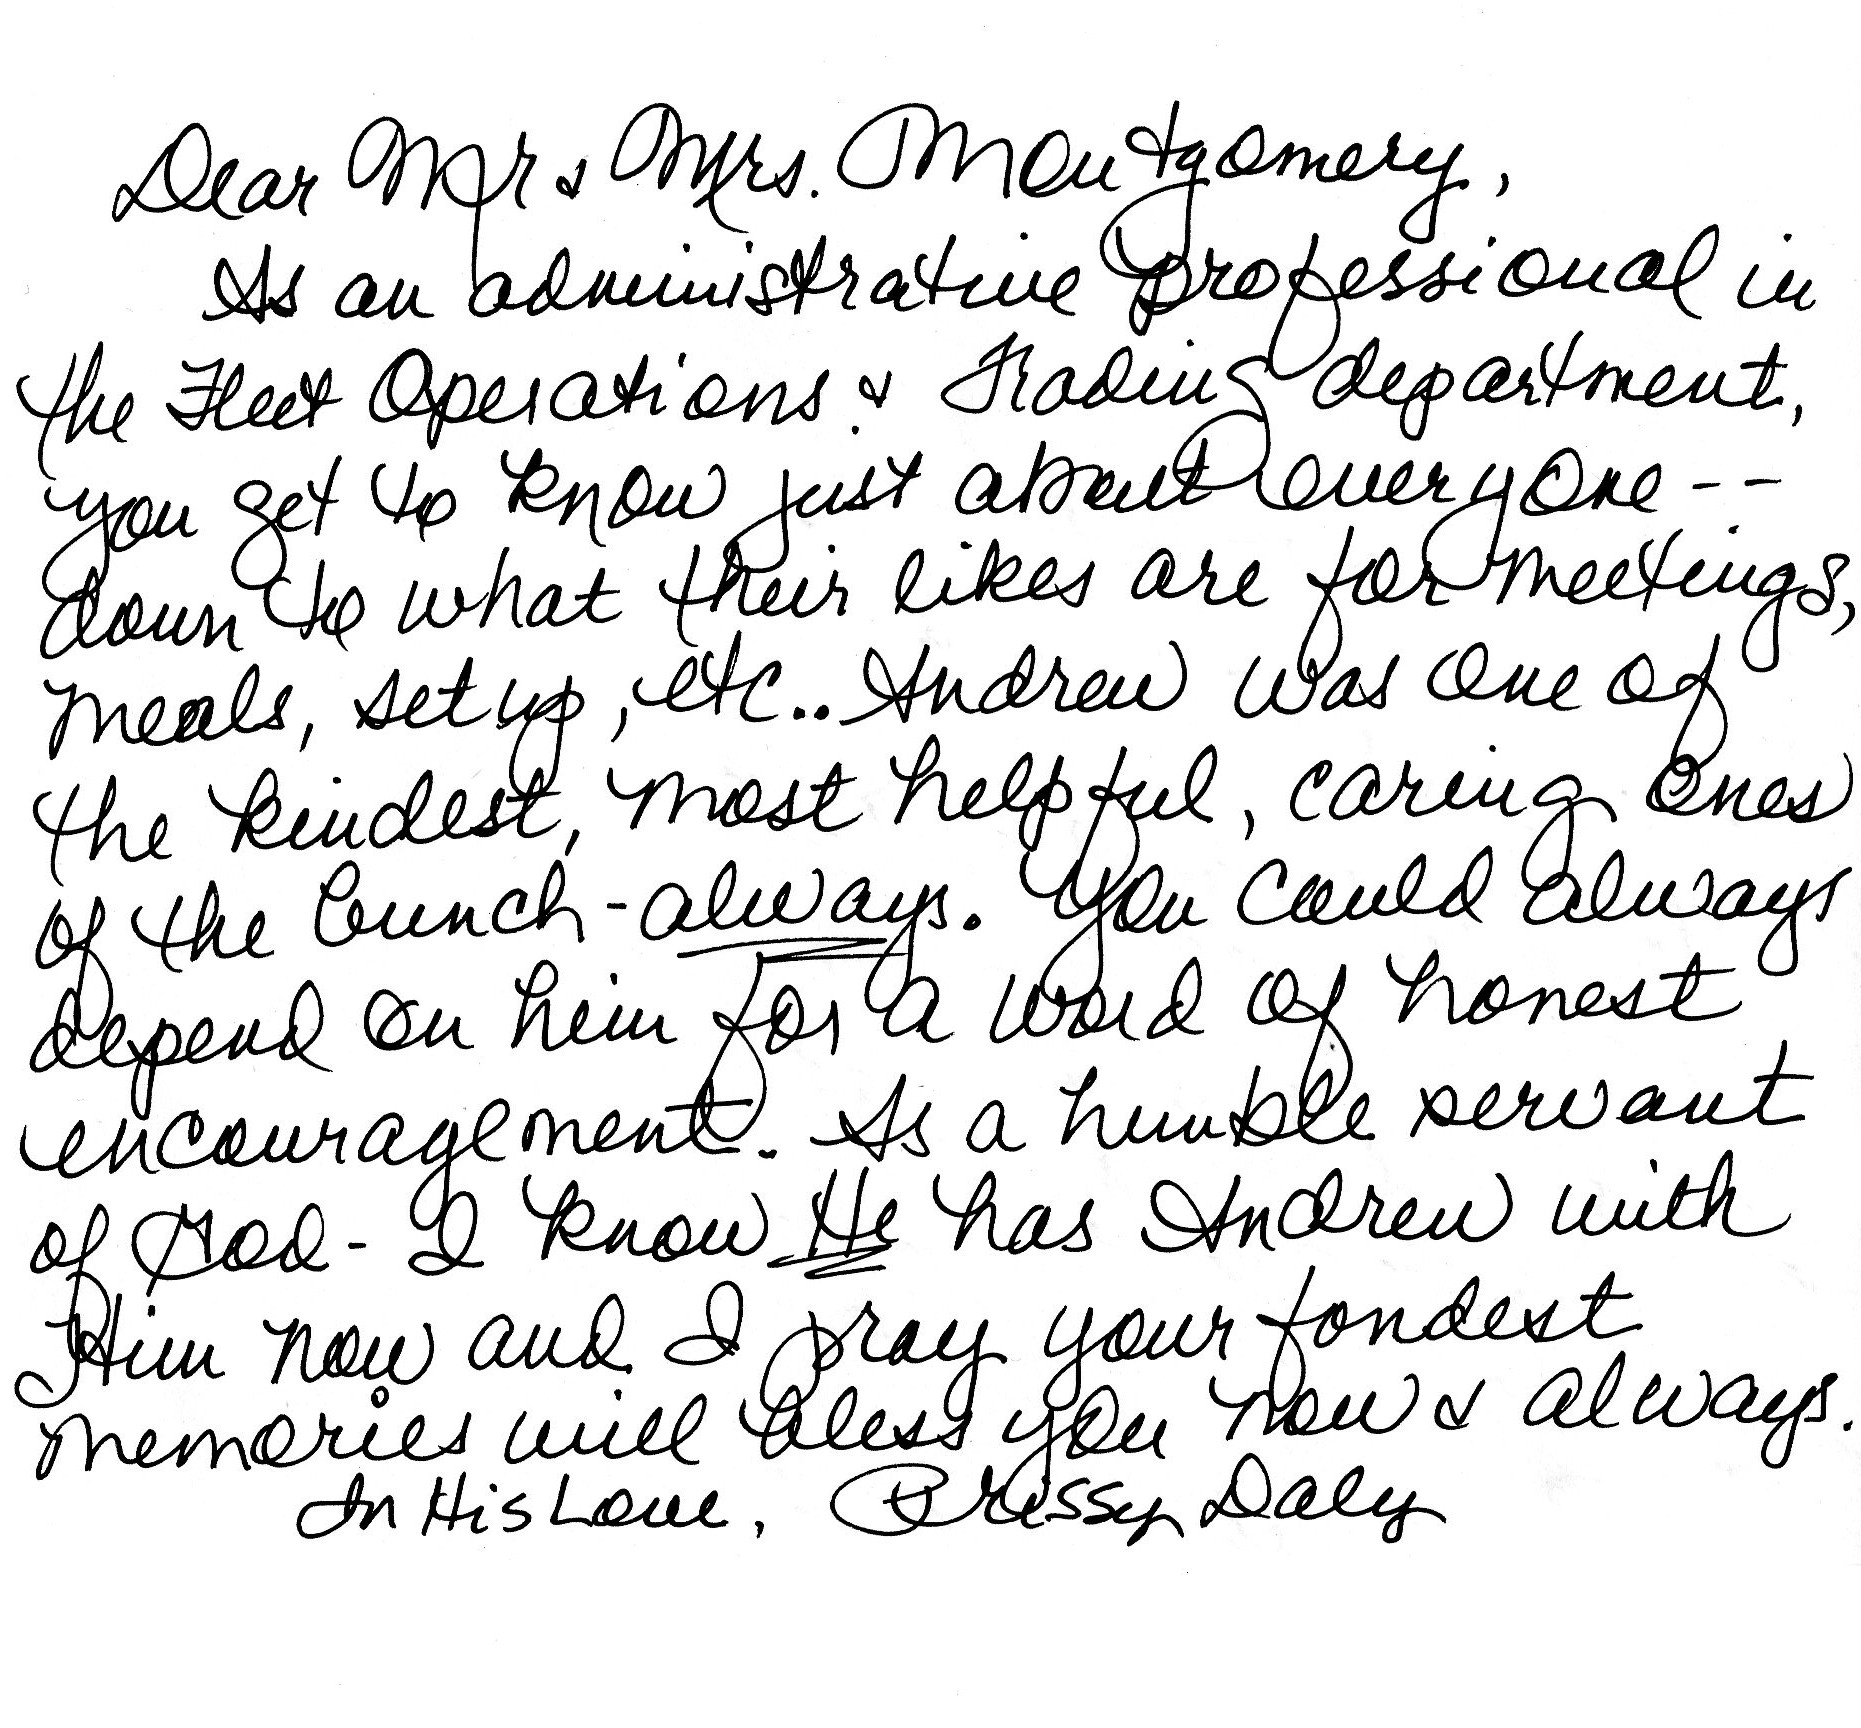 Dear Mr & Mrs. Montgomery,
As an administrative professional in
the Fleet Operations & Trading department,
you get to know just about everyone --
down to what their likes are for meetings,
meals, set up, etc.. Andrew was one of
the kindest, most helpful, caring ones
of the bunch - always. You could always
depend on him for a word of honest
encouragement. As a humble servant
of God - I know He has Andrew with
Him now and I pray your fondest
memories will bless you now & always.
In His Love, Prissy Daly